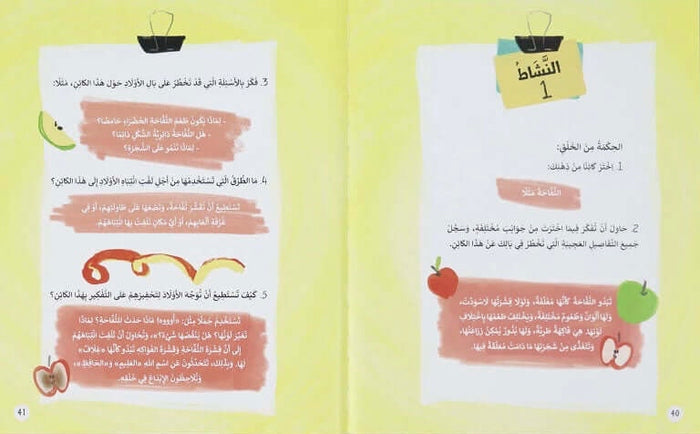 النَّشَاطُ
1
الحِكْمَةُ مِنَ الخَلْقِ:
1. اخْتَرْ كَائِنًا مِنْ ذِهْنِكَ:
التُّفَّاحَةُ مَثَلًا
2. حَاوِلْ أَنْ تُفَكِّرَ فِيمَا اخْتَرْتَ مِنْ جَوَانِبَ مُخْتَلِفَةٍ، وَسَجِّلْ
جَمِيعَ التَّفَاصِيلِ العَجِيبَةِ الَّتِي تَخْطُرُ فِي بَالِكَ عَنْ هَذَا الكَائِنِ.
تَبْدُو التُّفَّاحَةُ كَأَنَّهَا مُغَلَّفَةٌ، وَلَوْلَا قِشْرَتُهَا لَاسْوَدَّتْ،
وَلَهَا أَلْوَانٌ وَطُعُومٌ مُخْتَلِفَةٌ، وَيَخْتَلِفُ طَعْمُهَا بِاخْتِلَافِ
لَوْنِهَا. هِيَ فَاكِهَةٌ طَرِيَّةٌ، وَلَهَا بُذُورٌ يُمْكِنُ زِرَاعَتُهَا،
وَتَتَغَذَّى مِنْ شَجَرَتِهَا مَا دَامَتْ مُعَلَّقَةً فِيهَا.
40
3. فَكِّرْ بِالأَسْئِلَةِ الَّتِي قَدْ تَخْطُرُ عَلَى بَالِ الأَوْلَادِ حَوْلَ هَذَا الكَائِنِ، مَثَلًا:
- لِمَاذَا يَكُونُ طَعْمُ التُّفَّاحَةِ الخَضْرَاءِ حَامِضًا؟
- هَلِ التُّفَّاحَةُ دَائِرِيَّةُ الشَّكْلِ دَائِمًا؟
- لِمَاذَا تَنْمُو عَلَى الشَّجَرَةِ؟
4. مَا الطُّرُقُ الَّتِي تَسْتَخْدِمُهَا مِنْ أَجْلِ لَفْتِ انْتِبَاهِ الأَوْلَادِ إِلَى هَذَا الكَائِنِ؟
تَسْتَطِيعُ أَنْ تُقَشِّرَ تُفَّاحَةً، وَتَضَعَهَا عَلَى طَاوِلَتِهِمْ، أَوْ فِي
غُرْفَةِ أَلْعَابِهِمْ، أَوْ أَيِّ مَكَانٍ تَلْفِتُ بِهَا انْتِبَاهَهُمْ.
5. كَيْفَ تَسْتَطِيعُ أَنْ تُوَجِّهَ الأَوْلَادَ لِتَحْفِيزِهِمْ عَلَى التَّفْكِيرِ بِهَذَا الكَائِنِ؟
تَسْتَخْدِمُ جُمَلًا مِثْلَ: «أووووه! مَاذَا حَدَثَ لِلتُّفَّاحَةِ؟ لِمَاذَا
تَغَيَّرَ لَوْنُهَا؟ هَلْ يَنْقُصُهَا شَيْءٌ؟»، وَتُحَاوِلُ أَنْ تَلْفِتَ انْتِبَاهَهُمْ
إِلَى أَنَّ قِشْرَةَ التُّفَّاحَةِ وَقِشْرَةَ الفَوَاكِهِ تَبْدُو كَأَنَّهَا «غِلَافٌ»
لَهَا. وَبِذَلِكَ، تَتَحَدَّثُونَ عَنِ اسْمِ اللهِ «العَلِيمِ» وَ«الحَافِظِ»،
وَتُلَاحِظُونَ الإِبْدَاعَ فِي خَلْقِهِ.
41